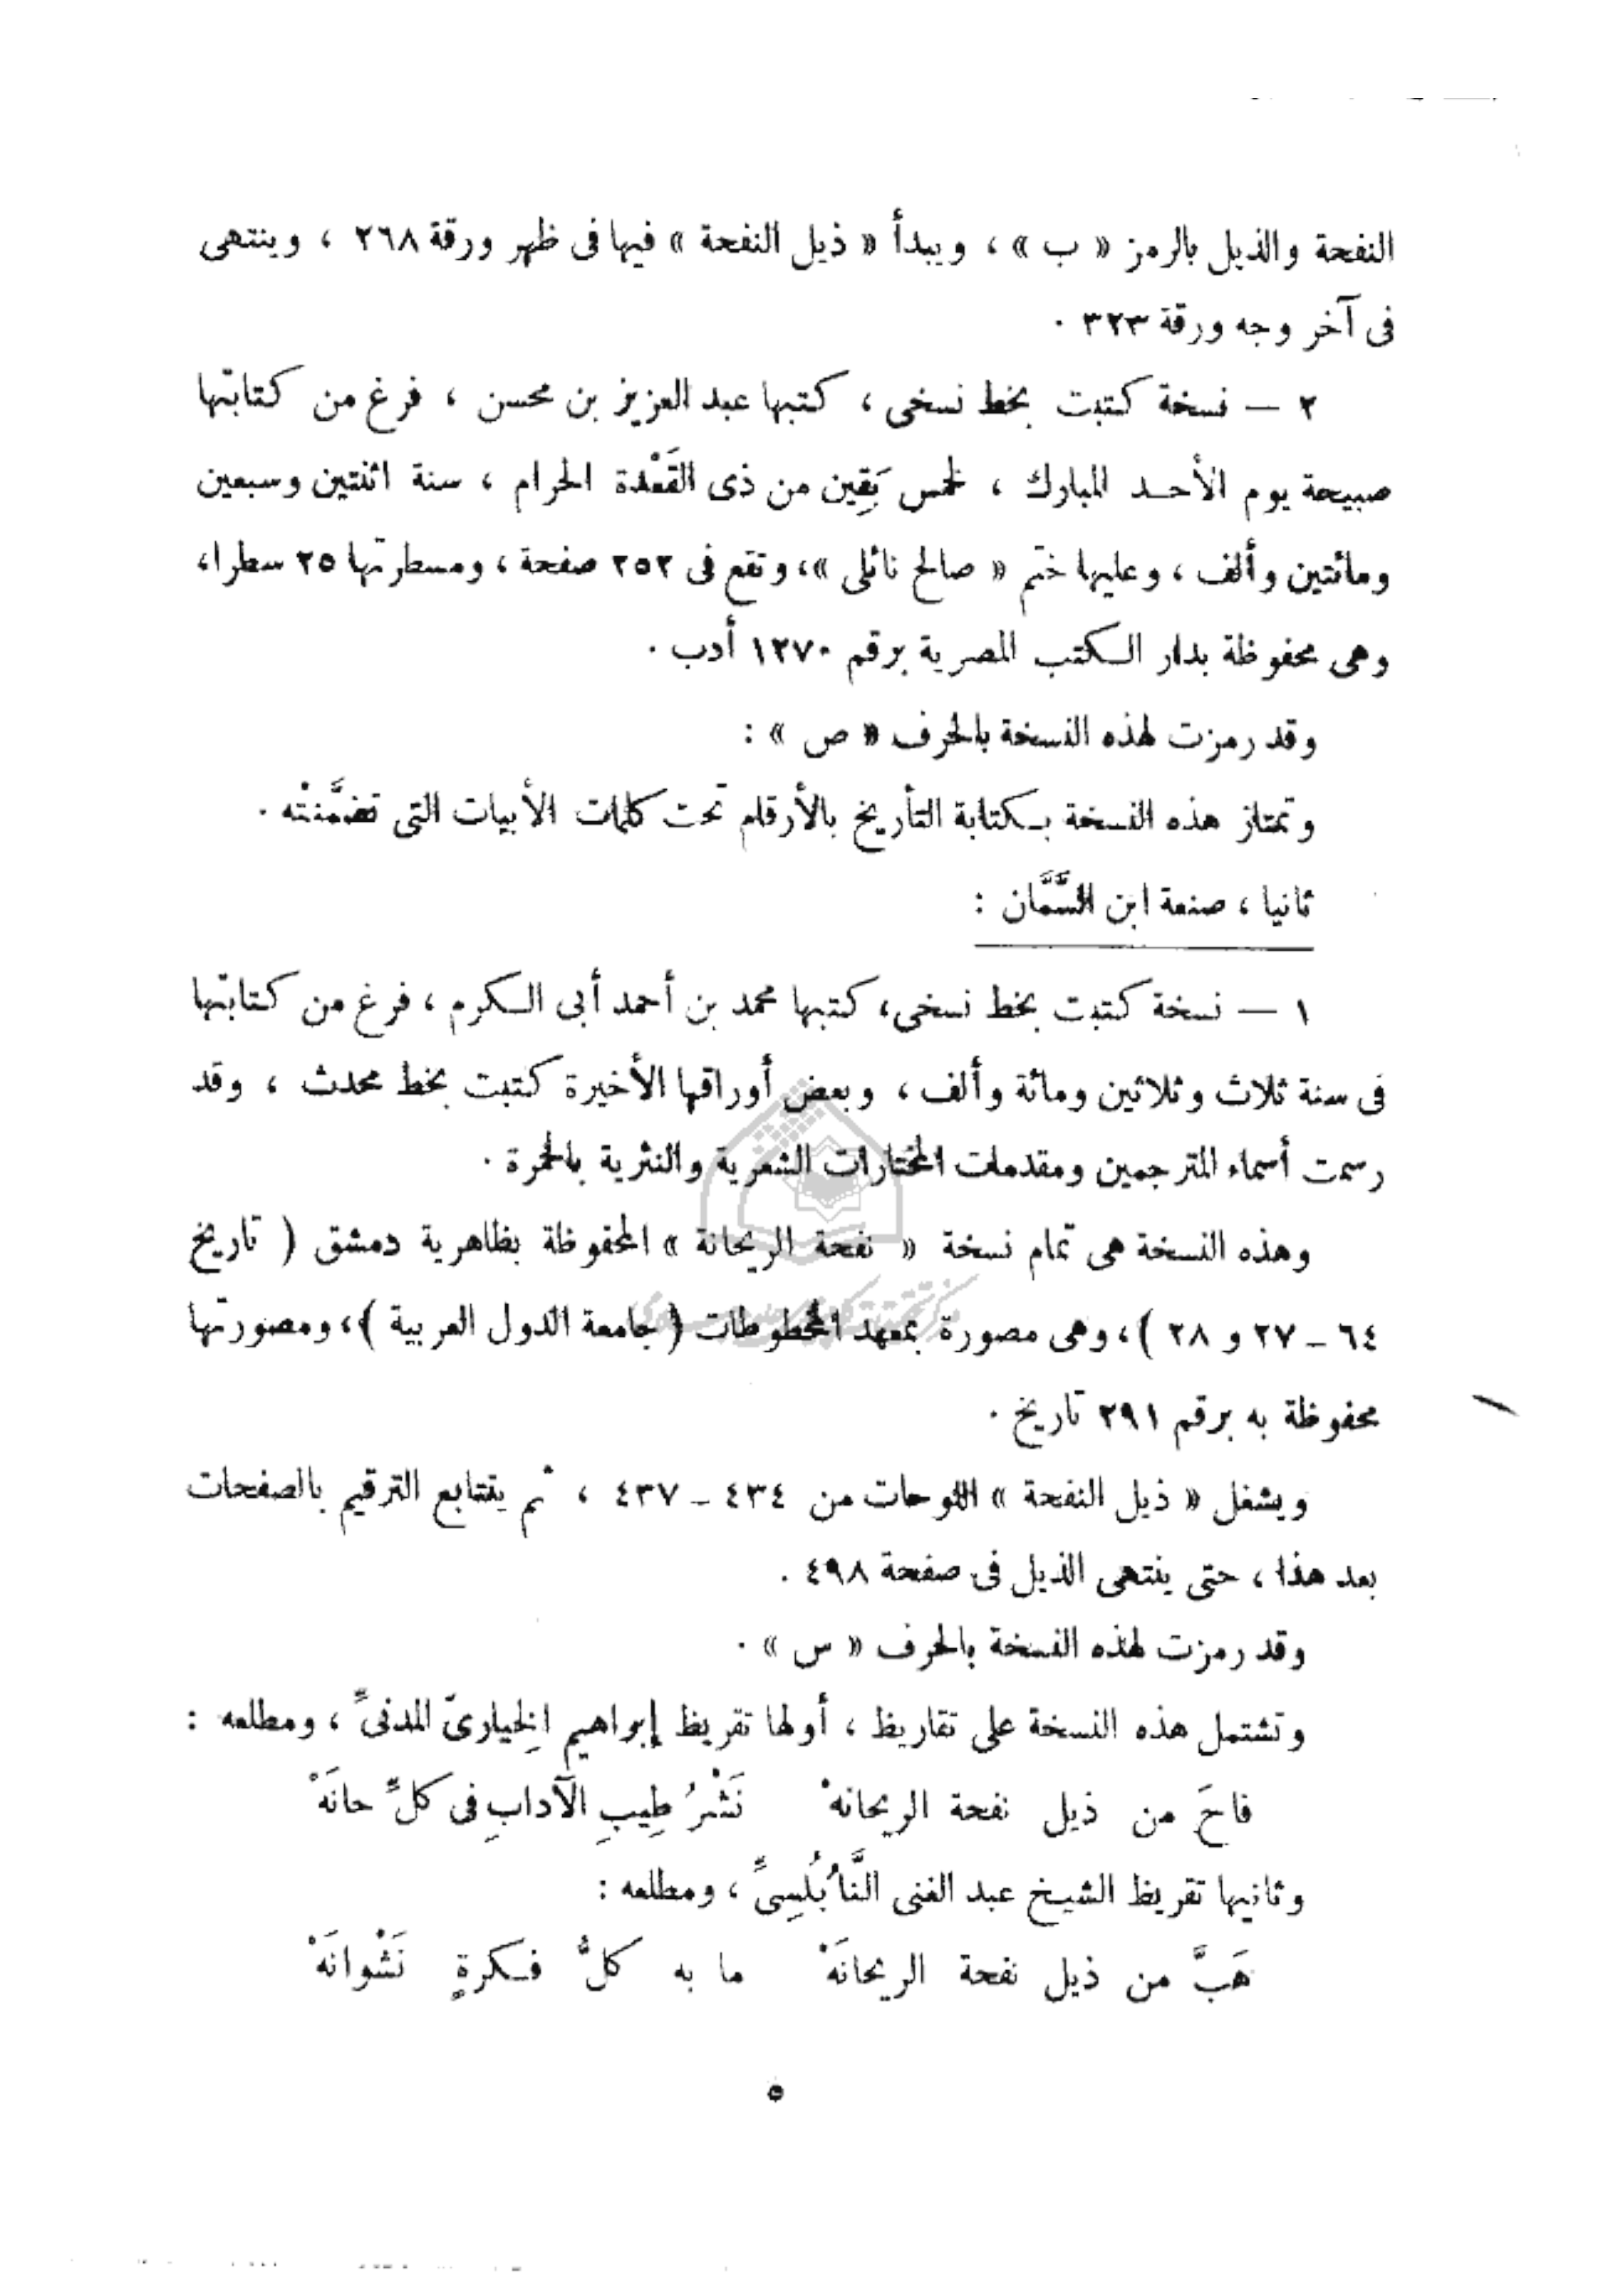 النفحة والذيل بالرمز « ب » ، ويبدأ « ذيل النفحة » فيها فى ظهر ورقة ٢٦٨ ، وينتهى
فى آخر وجه ورقة ٣٢٣ .
٢ — نسخة كتبت بخط نسخى ، كتبها عبد العزيز بن محسن ، فرغ من كتابتها
صبيحة يوم الأحد المبارك ، لخمس بَقِين من ذى القَعْدة الحرام ، سنة اثنتين وسبعين
ومائتين وألف ، وعليها ختم « صالح نائلى »، وتقع فى ٢٥٢ صفحة ، ومسطرتها ٢٥ سطرا،
وهى محفوظة بدار الكتب المصرية برقم ١٢٧٠ أدب .
وقد رمزت لهذه النسخة بالحرف « ص » :
وتمتاز هذه النسخة بكتابة التأريخ بالأرقام تحت كلمات الأبيات التى تضمَّنتْه .
ثانيا ، صنعة ابن السَّمَّان :
١ — نسخة كتبت بخط نسخى، كتبها محمد بن أحمد أبى الكرم ، فرغ من كتابتها
فى سنة ثلاث وثلاثين ومائة وألف ، وبعض أوراقها الأخيرة كتبت بخط محدث ، وقد
رسمت أسماء المترجمين ومقدمات المختارات الشعرية والنثرية بالحمرة .
وهذه النسخة هى تمام نسخة « نفحة الريحانة » المحفوظة بظاهرية دمشق ( تاريخ
٦٤ – ٢٧ و ٢٨ )، وهى مصورة بمعهد المخطوطات ( جامعة الدول العربية )، ومصورتها
محفوظة به برقم ٢٩١ تاريخ .
ويشغل « ذيل النفحة » اللوحات من ٤٣٤ – ٤٣٧ ، ثم يتتابع الترقيم بالصفحات
بعد هذا ، حتى ينتهى الذيل فى صفحة ٤٩٨ .
وقد رمزت لهذه النسخة بالحرف « س » .
وتشتمل هذه النسخة على تقاريظ ، أولها تقريظ إبراهيم الخِيارىّ المدنىِّ ، ومطلعه :
فاحَ من ذيل نفحة الريحانهْ نَشْرُ طِيبِ الآدابِ فى كلِّ حانَهْ
وثانيها تقريظ الشيخ عبد الغنى النَّابُلسِىِّ ، ومطلعه :
هَبَّ من ذيل نفحة الريحانَهْ ما به كلُّ فكرةٍ نَشْوانَهْ
٥